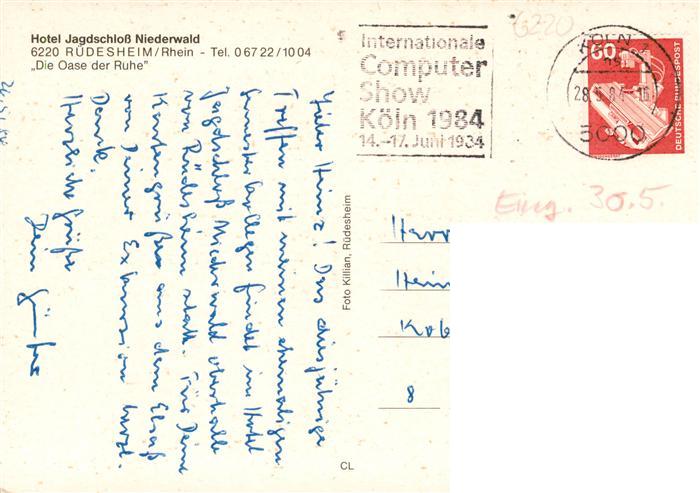 Hotel Jagdschloß Niederwald
6220 RÜDESHEIM/Rhein - Tel. 0 67 22 / 10 04
„Die Oase der Ruhe"
6220
Internationale
Computer
Show
Köln 1984
14.-17. Juni 1984
KÖLN
28.5.84-16
5000
60
DEUTSCHE BUNDESPOST
Eing. 30.5.
Lieber Heinz! Das diesjährige
Treffen mit meinen ehemaligen
Semesterkollegen findet im Hotel
Jagdschloß Niederwald oberhalb
von Rüdesheim statt. Für Deine
Kartengrüße aus dem Elsaß
von Deiner Exkursion herzl.
Dank.
Herzliche Grüße
Dein
Foto Killian, Rüdesheim
Herr
Hein
Kob
8
CL